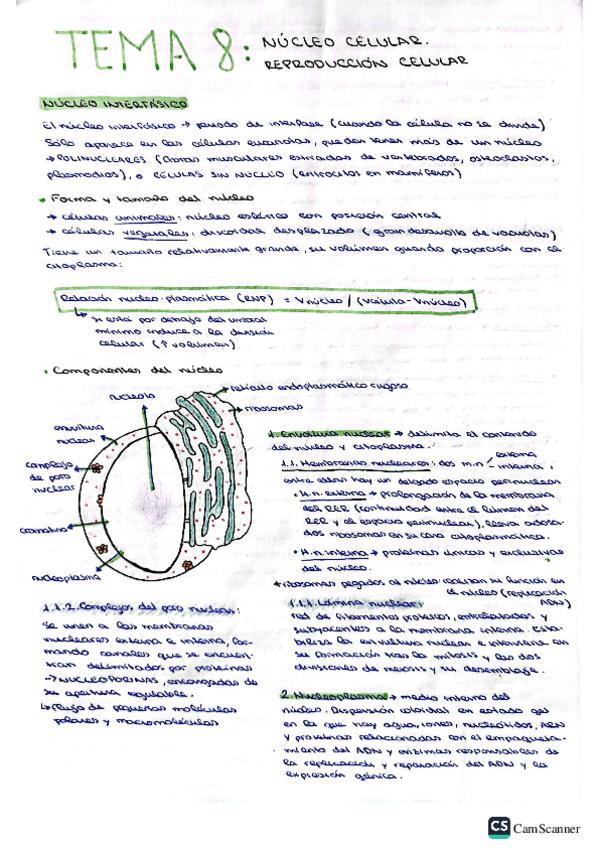 TEMA 8: NÚCLEO CELULAR.
REPRODUCCIÓN CELULAR
NÚCLEO INTERFÁSICO
El núcleo interfásico → periodo de interfase (cuando la célula no se divide)
Sólo aparece en las células eucariotas, pueden tener más de un núcleo
→ POLINUCLEARES (fibras musculares estriadas de vertebrados, osteoclastos,
plasmodios), o CÉLULAS SIN NÚCLEO (eritrocitos en mamíferos)
• Forma y tamaño del núcleo
→ células animales: núcleo esférico con posición central
→ células vegetales: discoidal desplazado (gran desarrollo de vacuolas)
Tiene un tamaño relativamente grande, su volumen guarda proporción con el
citoplasma:
Relación nucleo-plasmática (RNP) = Vnúcleo / (Vcélula - Vnúcleo)
↳ si está por debajo del umbral
mínimo induce a la división
celular (↑ volumen)
• Componentes del núcleo
nucleolo
retículo endoplasmático rugoso
ribosomas
envoltura
nuclear
complejo
de poro
nuclear
cromatina
nucleoplasma
1. Envoltura nuclear → delimita el contenido
del núcleo y citoplasma.
1.1. Membranas nucleares: dos m.n externa
interna,
entre ellas hay un delgado espacio perinuclear
• M.n. externa → prolongación de la membrana
del RER (continuidad entre el lumen del
RER y el espacio perinuclear), lleva adosa-
dos ribosomas en su cara citoplasmática.
• M.n. interna → proteínas únicas y exclusivas
del núcleo.
*ribosomas pegados al núcleo realizan su función en
el núcleo (replicación
ADN)
1.1.1. Lámina nuclear:
red de filamentos proteicos, entrelazados y
subyacentes a la membrana interna. Esta-
biliza la envoltura nuclear e interviene en
su formación tras la mitosis y las dos
divisiones de meiosis y su desemblaje.
1.1.2. Complejos del poro nuclear:
Se unen a las membranas
nucleares externa e interna, for-
mando canales que se encuen-
tran delimitados por proteínas
→ NUCLEOPORINAS, encargadas de
su apertura regulable.
↳ flujo de pequeñas moléculas
polares y macromoléculas
2. Nucleoplasma → medio interno del
núcleo. Dispersión coloidal en estado gel
en la que hay agua, iones, nucleótidos, ARN
y proteínas relacionadas con el empaqueta-
miento del ADN y enzimas responsables de
la replicación y reparación del ADN y la
expresión génica.
CS CamScanner